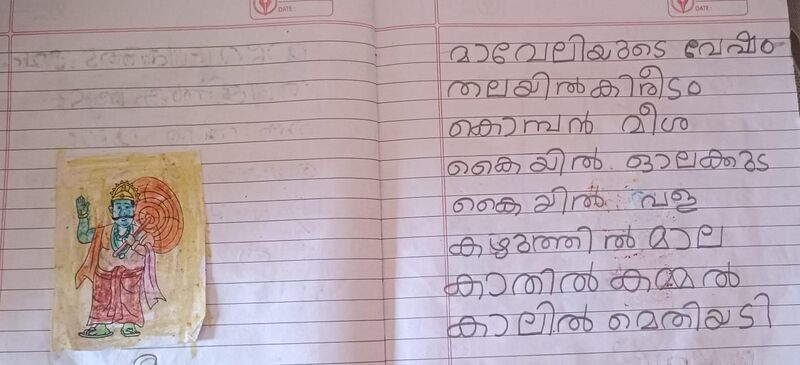 DATE :
DATE :
മാവേലിയുടെ വേഷം
തലയിൽ കിരീടം
കൊമ്പൻ മീശ
കൈയിൽ ഓലക്കുട
കൈയിൽ വള
കഴുത്തിൽ മാല
കാതിൽ കമ്മൽ
കാലിൽ മെതിയടി